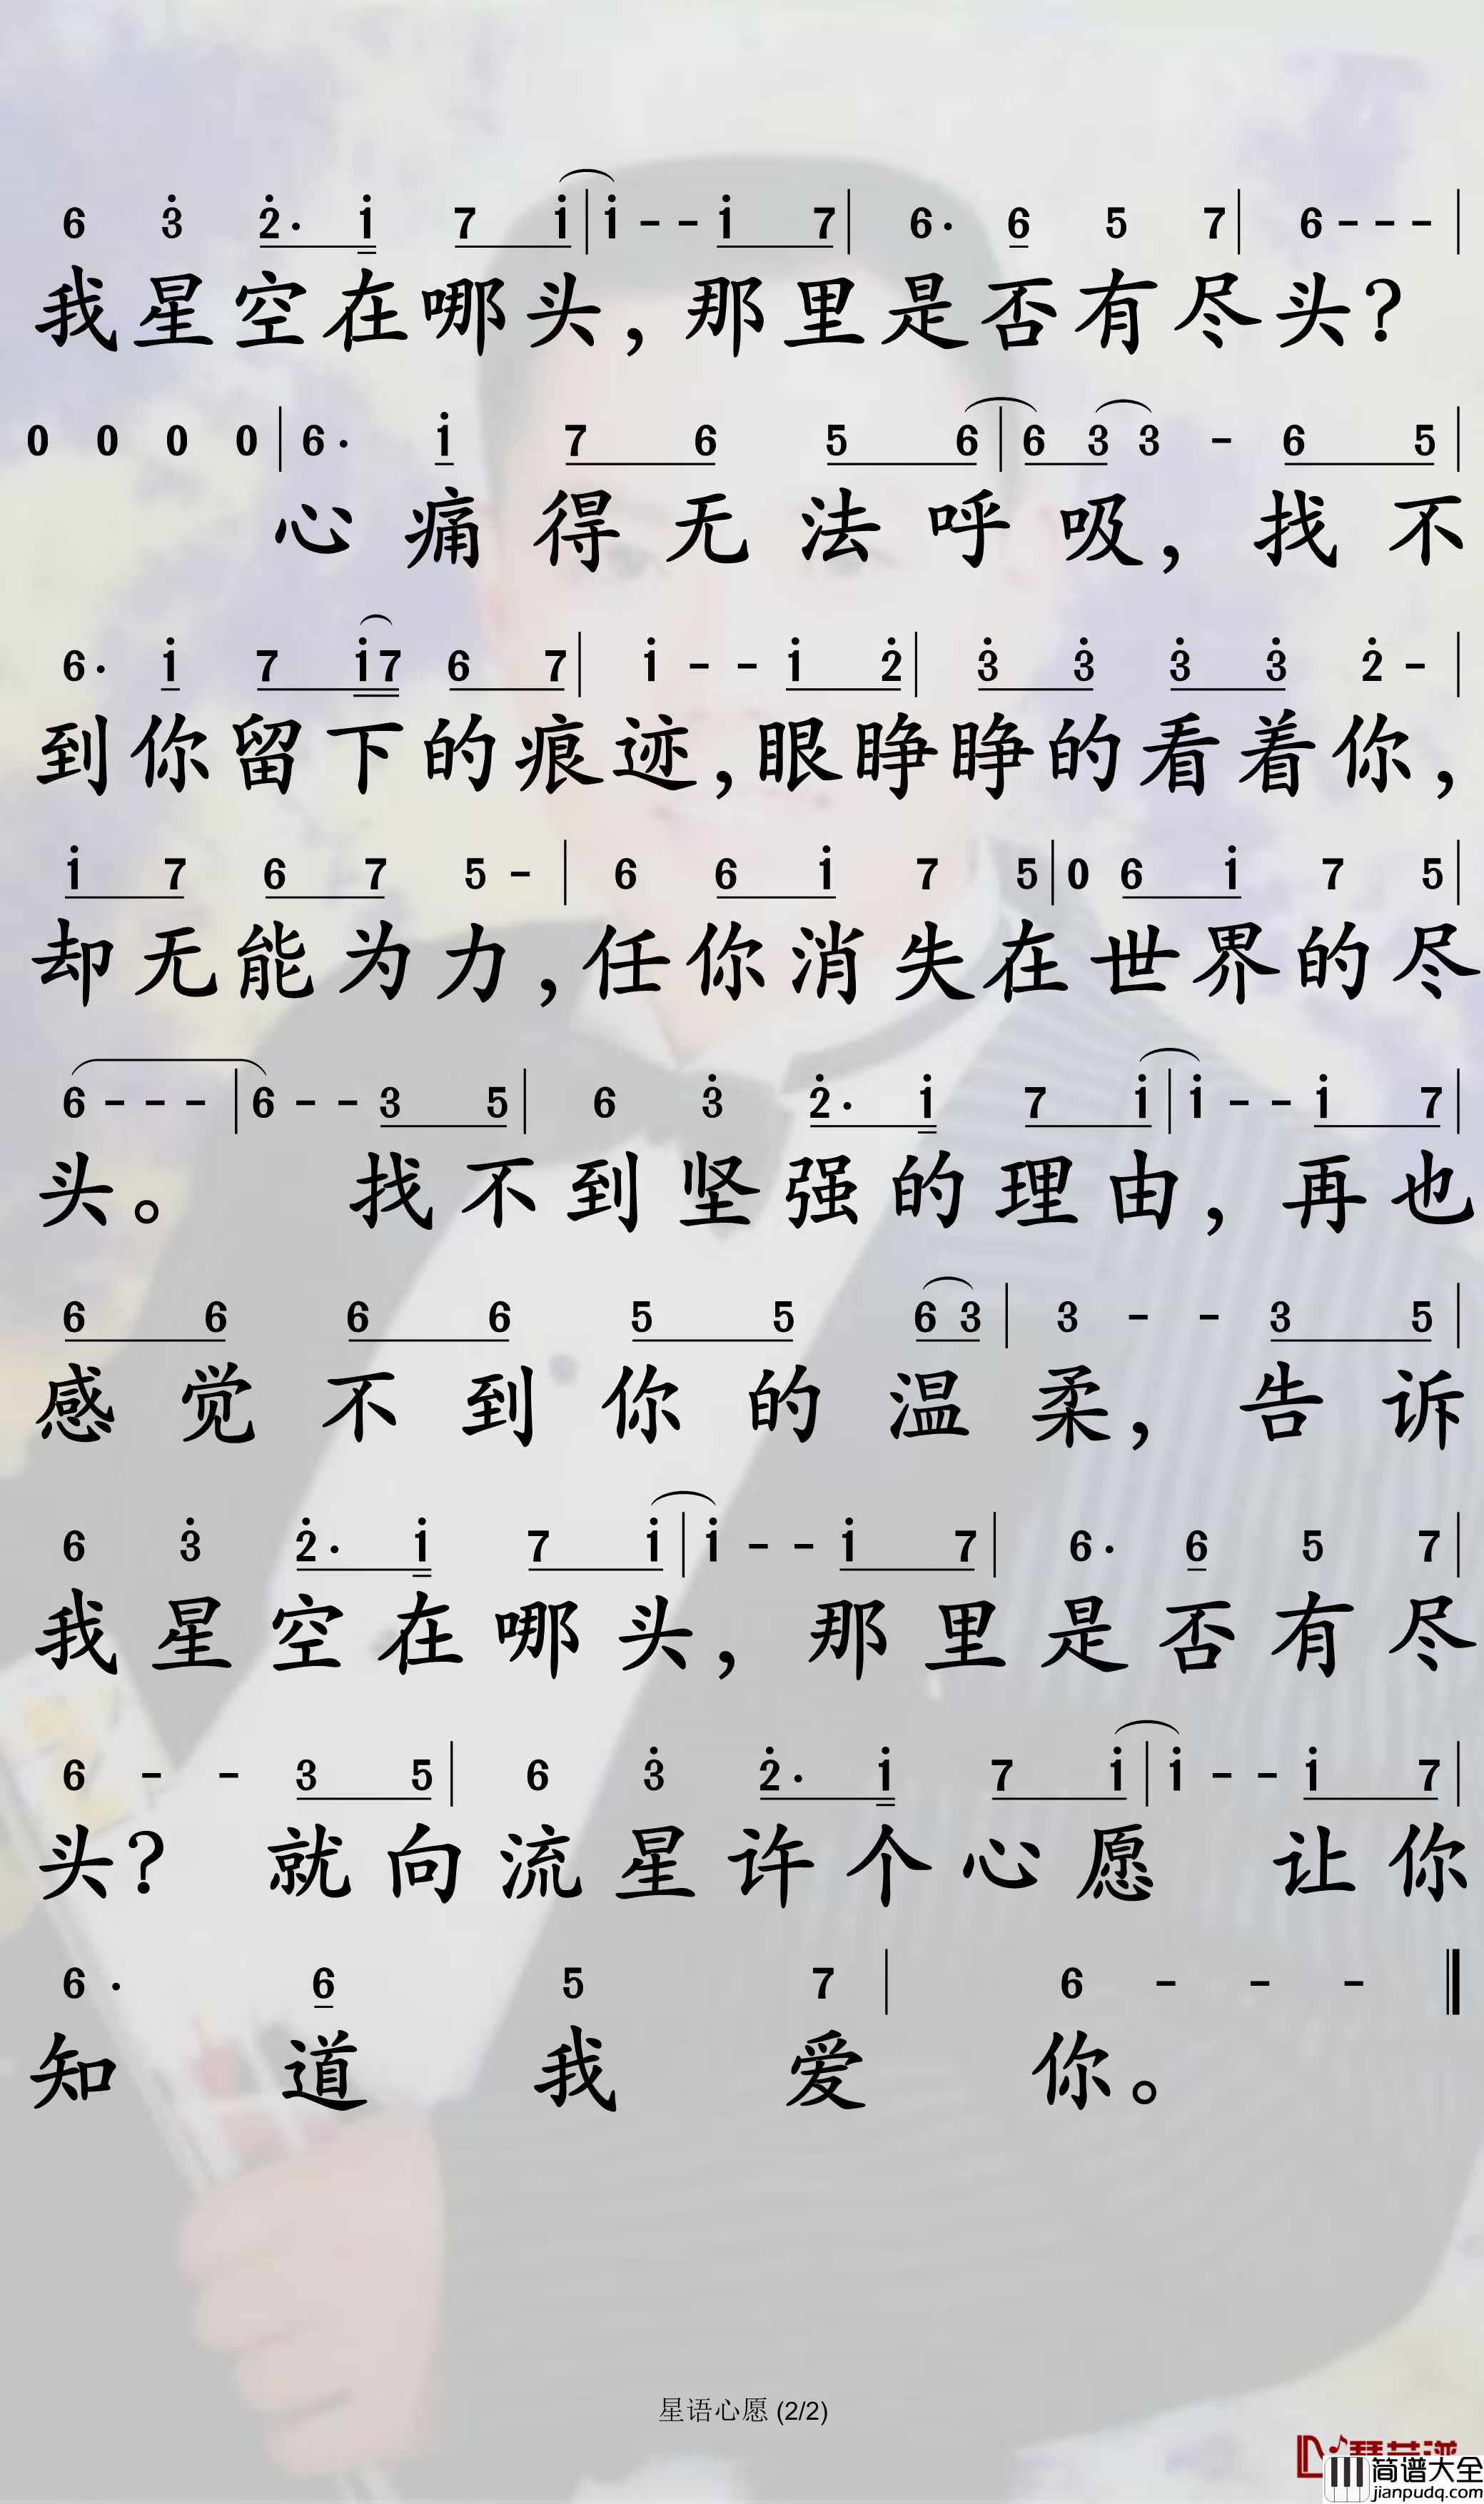 6 3 2· 1 7 1 | 1 - - 1 7 | 6· 6 5 7 | 6 - - - |
我星空在哪头，那里是否有尽头？
0 0 0 0 | 6· 1 7 6 5 6 | 6 3 3 - 6 5 |
心痛得无法呼吸，找不
6· 1 7 1 7 6 7 | 1 - - 1 2 | 3 3 3 3 2 - |
到你留下的痕迹，眼睁睁的看着你，
1 7 6 7 5 - | 6 6 1 7 5 | 0 6 1 7 5 |
却无能为力，任你消失在世界的尽
6 - - - | 6 - - 3 5 | 6 3 2· 1 7 1 | 1 - - 1 7 |
头。 找不到坚强的理由，再也
6 6 6 6 5 5 6 3 | 3 - - 3 5 |
感觉不到你的温柔，告诉
6 3 2· 1 7 1 | 1 - - 1 7 | 6· 6 5 7 |
我星空在哪头，那里是否有尽
6 - - 3 5 | 6 3 2· 1 7 1 | 1 - - 1 7 |
头？ 就向流星许个心愿 让你
6· 6 5 7 | 6 - - - ‖
知道我爱你。
星语心愿 (2/2)
简谱大全
jianpudq.com